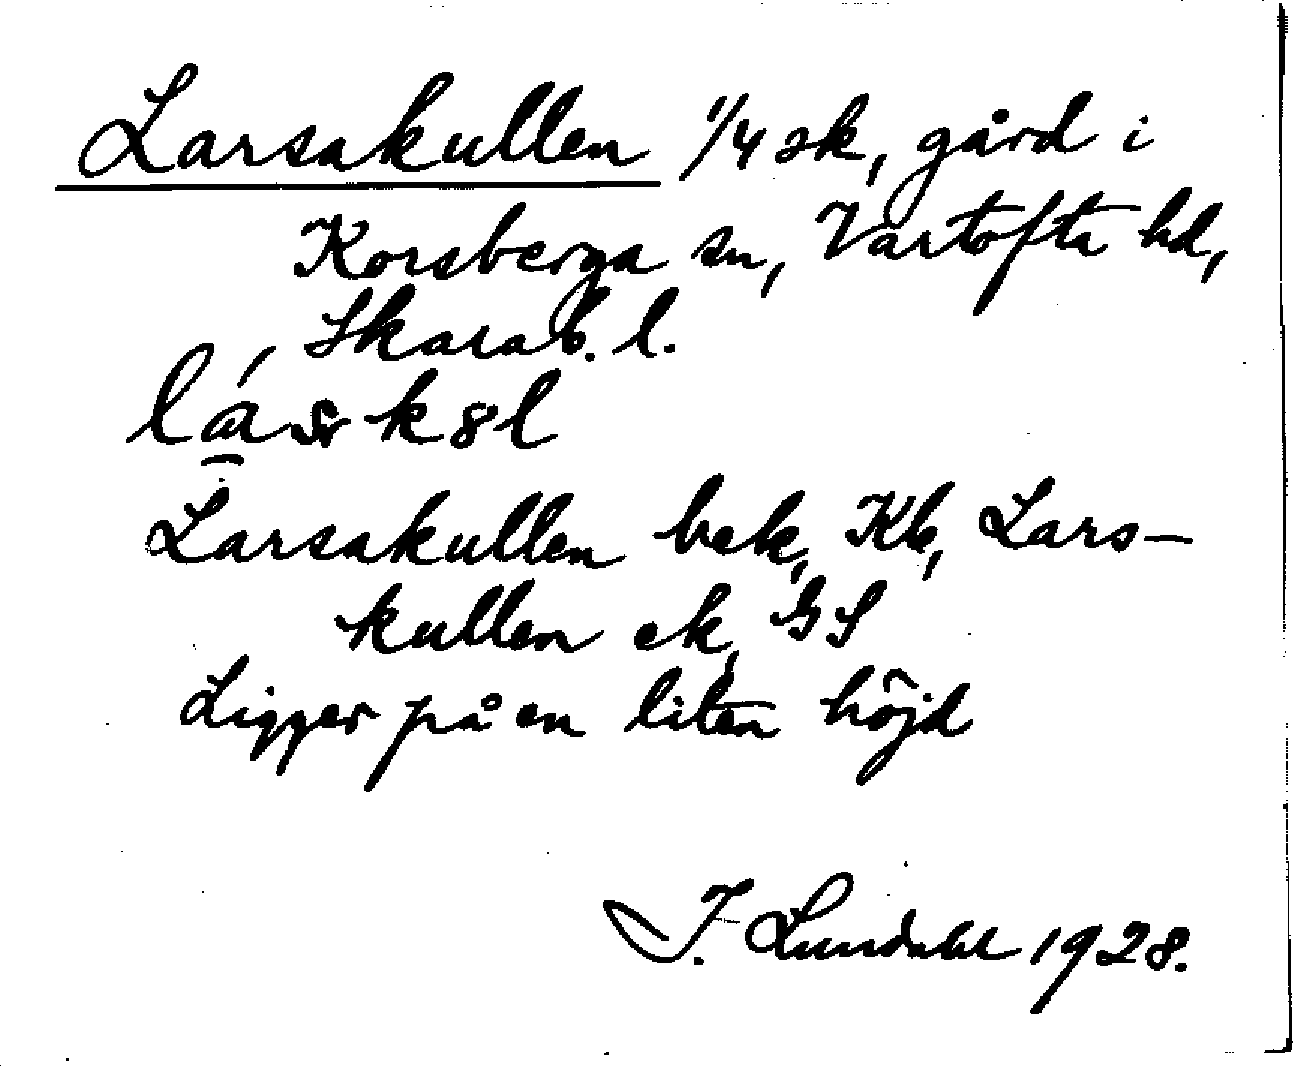 Larsakullen 1/4 sk, gård i
Korsberga sn, Vartofta hd,
Skarab. l.
Larsakullen bek, Kb, Lars-
kullen ek, GS
Ligger på en liten höjd
I. Lundahl 1928.